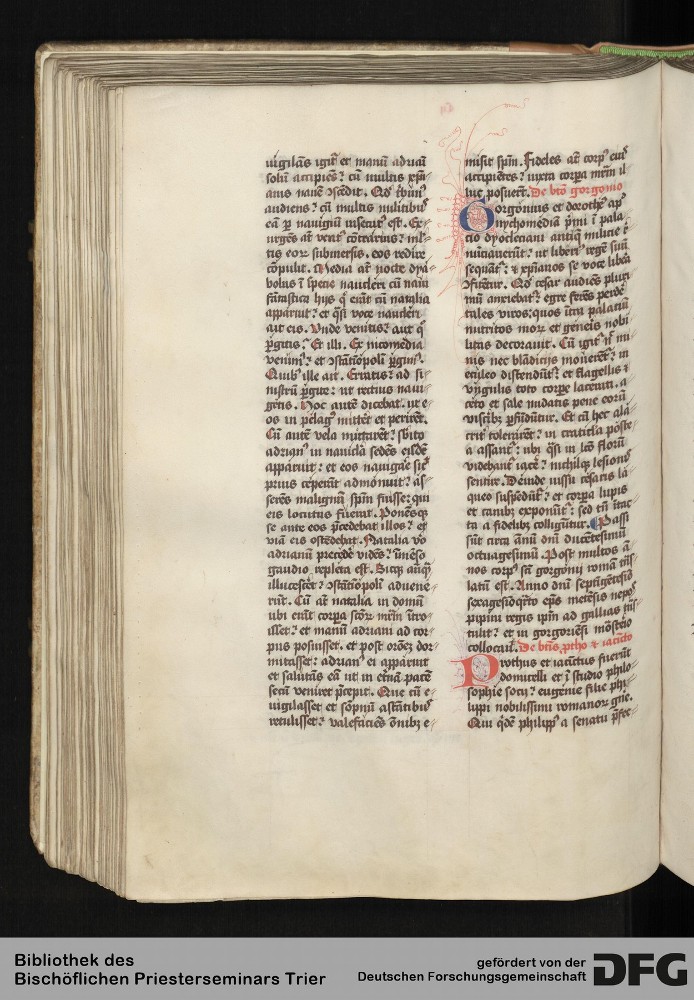 uigilās igit᷑ et manū adriani
solū accipiēs? cū multis xp̄i
anis nauē ꝯscēdit. Qd̓ tbun⁹
audiens? cū multis militib⁹
eā ꝑ nauigiū insecut⁹ est. Ex
urgēs aūt vent⁹ cōtrarius? ml̓
tis eoꝝ submersis. eos redire
cōpulit. Media aūt nocte dya
bolus ī specie naucleri cū naui
fātastica hijs qͥ erāt cū natalia
apparuit? et qͣsi voce naucleri
ait eis. Vnde venitis? aut qͦ
ꝑgitis? Et illi. Ex nicomedia
venim⁹? et ꝯstātinopolī ꝑgim⁹.
Quib⁹ ille ait. Erratis? ad si
nistrū ꝑgite? ut rectius naui
getis. Hoc autē dicebat. ut e
os in pelag⁹ mittēt et perirēt.
Cū autē vela mittarēt? sb̓ito
adrian⁹ in nauicla sedēs eisdē
apparuit? et eos nauigare sic̄
prius ceperāt admonuit? as
serēs malignū sp̄m fuisse? qui
eis locutus fuerat. Ponēsqꝫ
se ante eos p̄cedebat illos? et
viā eis ostēdebat. Natalia v̓o
adrianū precedē vidēs? īmēso
gaudio repleta est. Sicqꝫ ānqͣ
illucescēt? ꝯstātinopolī aduene
rūt. Cū aūt natalia in domū
ubi erāt corpa sc̄oꝝ mr̄m ītro
isset? et manū adriani ad cor
pus posuisset. et post orōeꝫ dor
mitasset? adrian⁹ ei apparuit
et salutās eā ut in et̓nā pacē
secū veniret p̄cepit. Que cū e
uigilasset et sopnīū astātib⁹
retulisset? valefaciēs om̄ibꝫ e
misit sp̄m. Fideles aūt corp⁹ eius
accipiētes? iuxta corpa mr̄m il
luc posuerūt. De btō gorgonio
Gorgonius et dorothe⁹ ap⁹
nychomediā pͥmi ī pala
cio dyocleciani antiqͣ milicie r̄
nūciauerūt? ut liberi⁹ regē suū
sequāt᷑? ⁊ xp̄ianos se voce libera
ꝯfitēt᷑. Qd̓ cesar audiēs pluri
mū anxiebat᷑? egre ferēs perdē
tales viros? quos ītra palatiū
nutritos moꝝ et gen̓is nobi
litas decorauit. Cū igit᷑ nͨ mi
nis nec blādicijs mouerēt᷑? in
eculeo distendūt᷑? et flagellis ⁊
vngulis toto corpe lacerati. a
ceto et sale nudatis pene eorū
viscibꝫ ꝑfūdūtur. Et cū hec ala
crit̓ tolerarēt? in craticla pōste
a assant᷑? ubi qͣsi in lcō florū
videbant᷑ iacē? nichilqꝫ lesionis
sentire. Deinde iussu cesaris la
queo suspēdūt᷑? et corpa lupis
et canibꝫ exponūt᷑? sed tn̄ ītac
ta a fidelibꝫ colligūtur. Passi
sūt circa ānū dn̄i ducētesimū
octuagesimū. Post multos ā
nos corp⁹ sc̄i gorgonij romā trās
latū est. Anno dn̄i septigentesiō
sexagesioqͣrto ep̄s metēsis nepos
pipini regis ip̄m ad gallias trās
tulit? et in gorgoriēsi mōst̓io
collocauit. De btīs ꝓtho ⁊ iacīcto
Prothus et iacīctus fuerūt
domicelli et ī studio philo
sophie socij? eugenie filie phi
lippi nobilissimi romanoꝝ gn̓e.
Qui qͥdē philipp⁹ a senatu p̄fec
Bibliothek des
Bischöflichen Priesterseminars Trier
gefördert von der
Deutschen Forschungsgemeinschaft
DFG